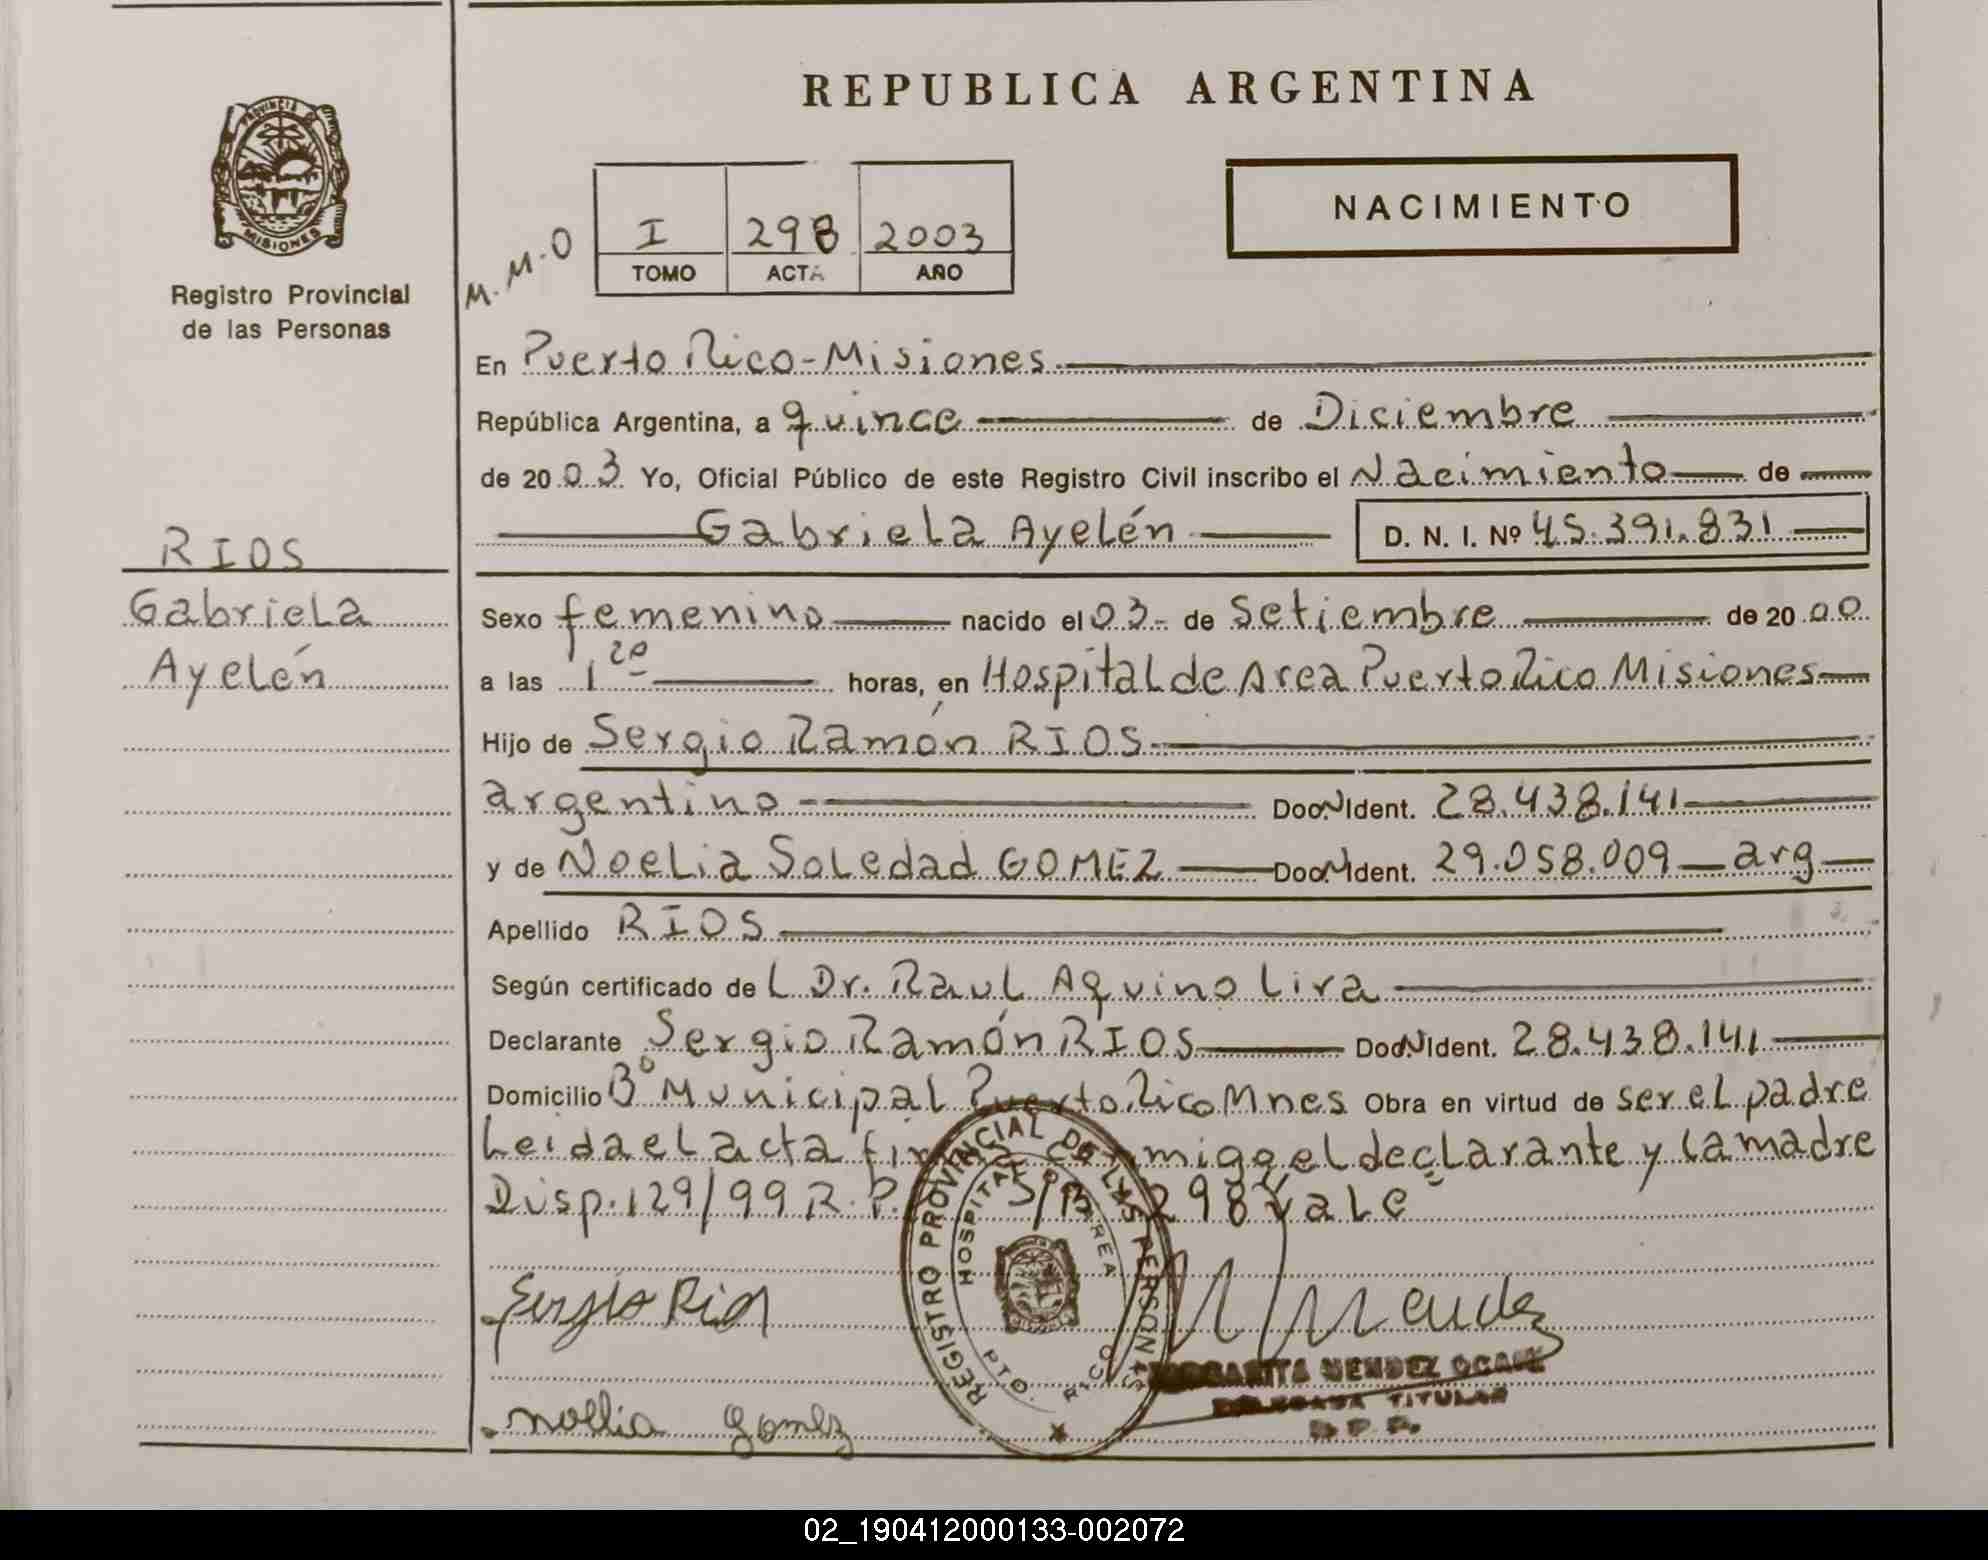 REPUBLICA ARGENTINA
PROVINCIA DE MISIONES
Registro Provincial
de las Personas
M.M.O
I 298 2003
TOMO ACTA AÑO
NACIMIENTO
En Puerto Rico-Misiones
República Argentina, a quince de Diciembre
de 2003 Yo, Oficial Público de este Registro Civil inscribo el Nacimiento de
Gabriela Ayelén D. N. I. Nº 45.391.831
RIOS
Gabriela
Ayelén
Sexo femenino nacido el 03- de Setiembre de 2000
a las 1 20 horas, en Hospital de Area Puerto Rico Misiones
Hijo de Sergio Ramón RIOS
argentino Doc. N Ident. 28.438.141
y de Noelia Soledad GOMEZ Doc. N Ident. 29.058.009 arg
Apellido RIOS
Según certificado de L Dr. Raul Aquino Lira
Declarante Sergio Ramón RIOS Doc. N Ident. 28.438.141
Domicilio Bº Municipal Puerto Rico Mnes Obra en virtud de ser el padre
Leida el acta conmigo el declarante y la madre
Disp. 129/99 R.P. S/R 298 Vale
Sergio Rios
Mendez
MARGARITA MENDEZ
TITULAR
noelia gomez
REGISTRO PROVINCIAL DE LAS PERSONAS
HOSPITAL AREA
PTO. RICO
02_190412000133-002072